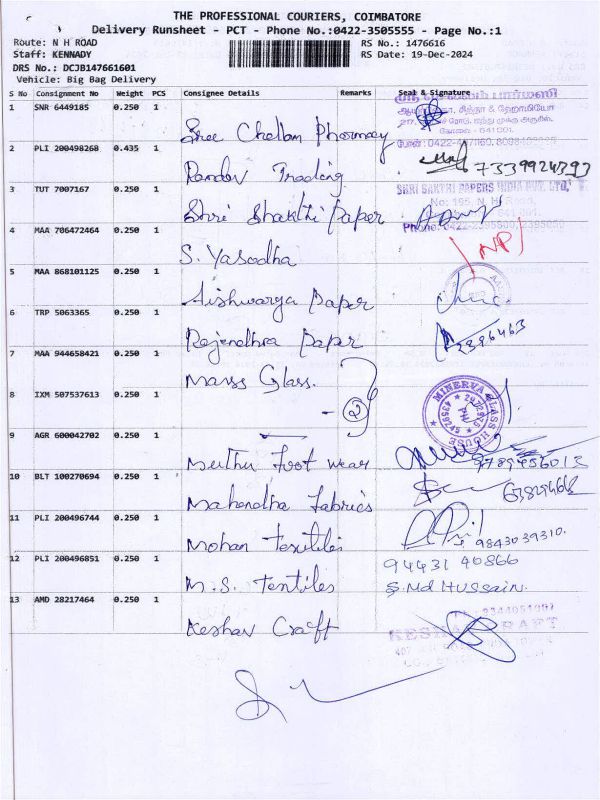 THE PROFESSIONAL COURIERS, COIMBATORE
Delivery Runsheet - PCT - Phone No.:0422-3505555 - Page No.:1
Route: N H ROAD
RS No.: 1476616
Staff: KENNADY
RS Date: 19-Dec-2024
DRS No.: DCJB147661601
Vehicle: Big Bag Delivery
S No Consignment No Weight PCS Consignee Details Remarks Seal & Signature
1 SNR 6449185 0.250 1 Sree Chellam Pharmacy
2 PLI 200498268 0.435 1 Trading 7339924393
SHRI SAKTHI PAPERS INDIA PVT. LTD,
No: 195, N. H. Road,
3 TUT 7007167 0.250 1 Shri Shakthi Paper
4 MAA 706472464 0.250 1 S. Yasodha NP
5 MAA 868101125 0.250 1 Aishwarya Paper
6 TRP 5063365 0.250 1 Rajendhra Paper
7 MAA 944658421 0.250 1 Glass.
MINERVA GLASS HOUSE
8 IXM 507537613 0.250 1 - 2
9 AGR 600042702 0.250 1 Muthu Foot wear 9789456013
10 BLT 100270694 0.250 1 Mahendha Fabrics
11 PLI 200496744 0.250 1 Mohan Textiles 9843039310.
12 PLI 200496851 0.250 1 M.S. Textiles 94431 40866
S.Md HUSSAIN.
13 AMD 28217464 0.250 1 Keshav Craft